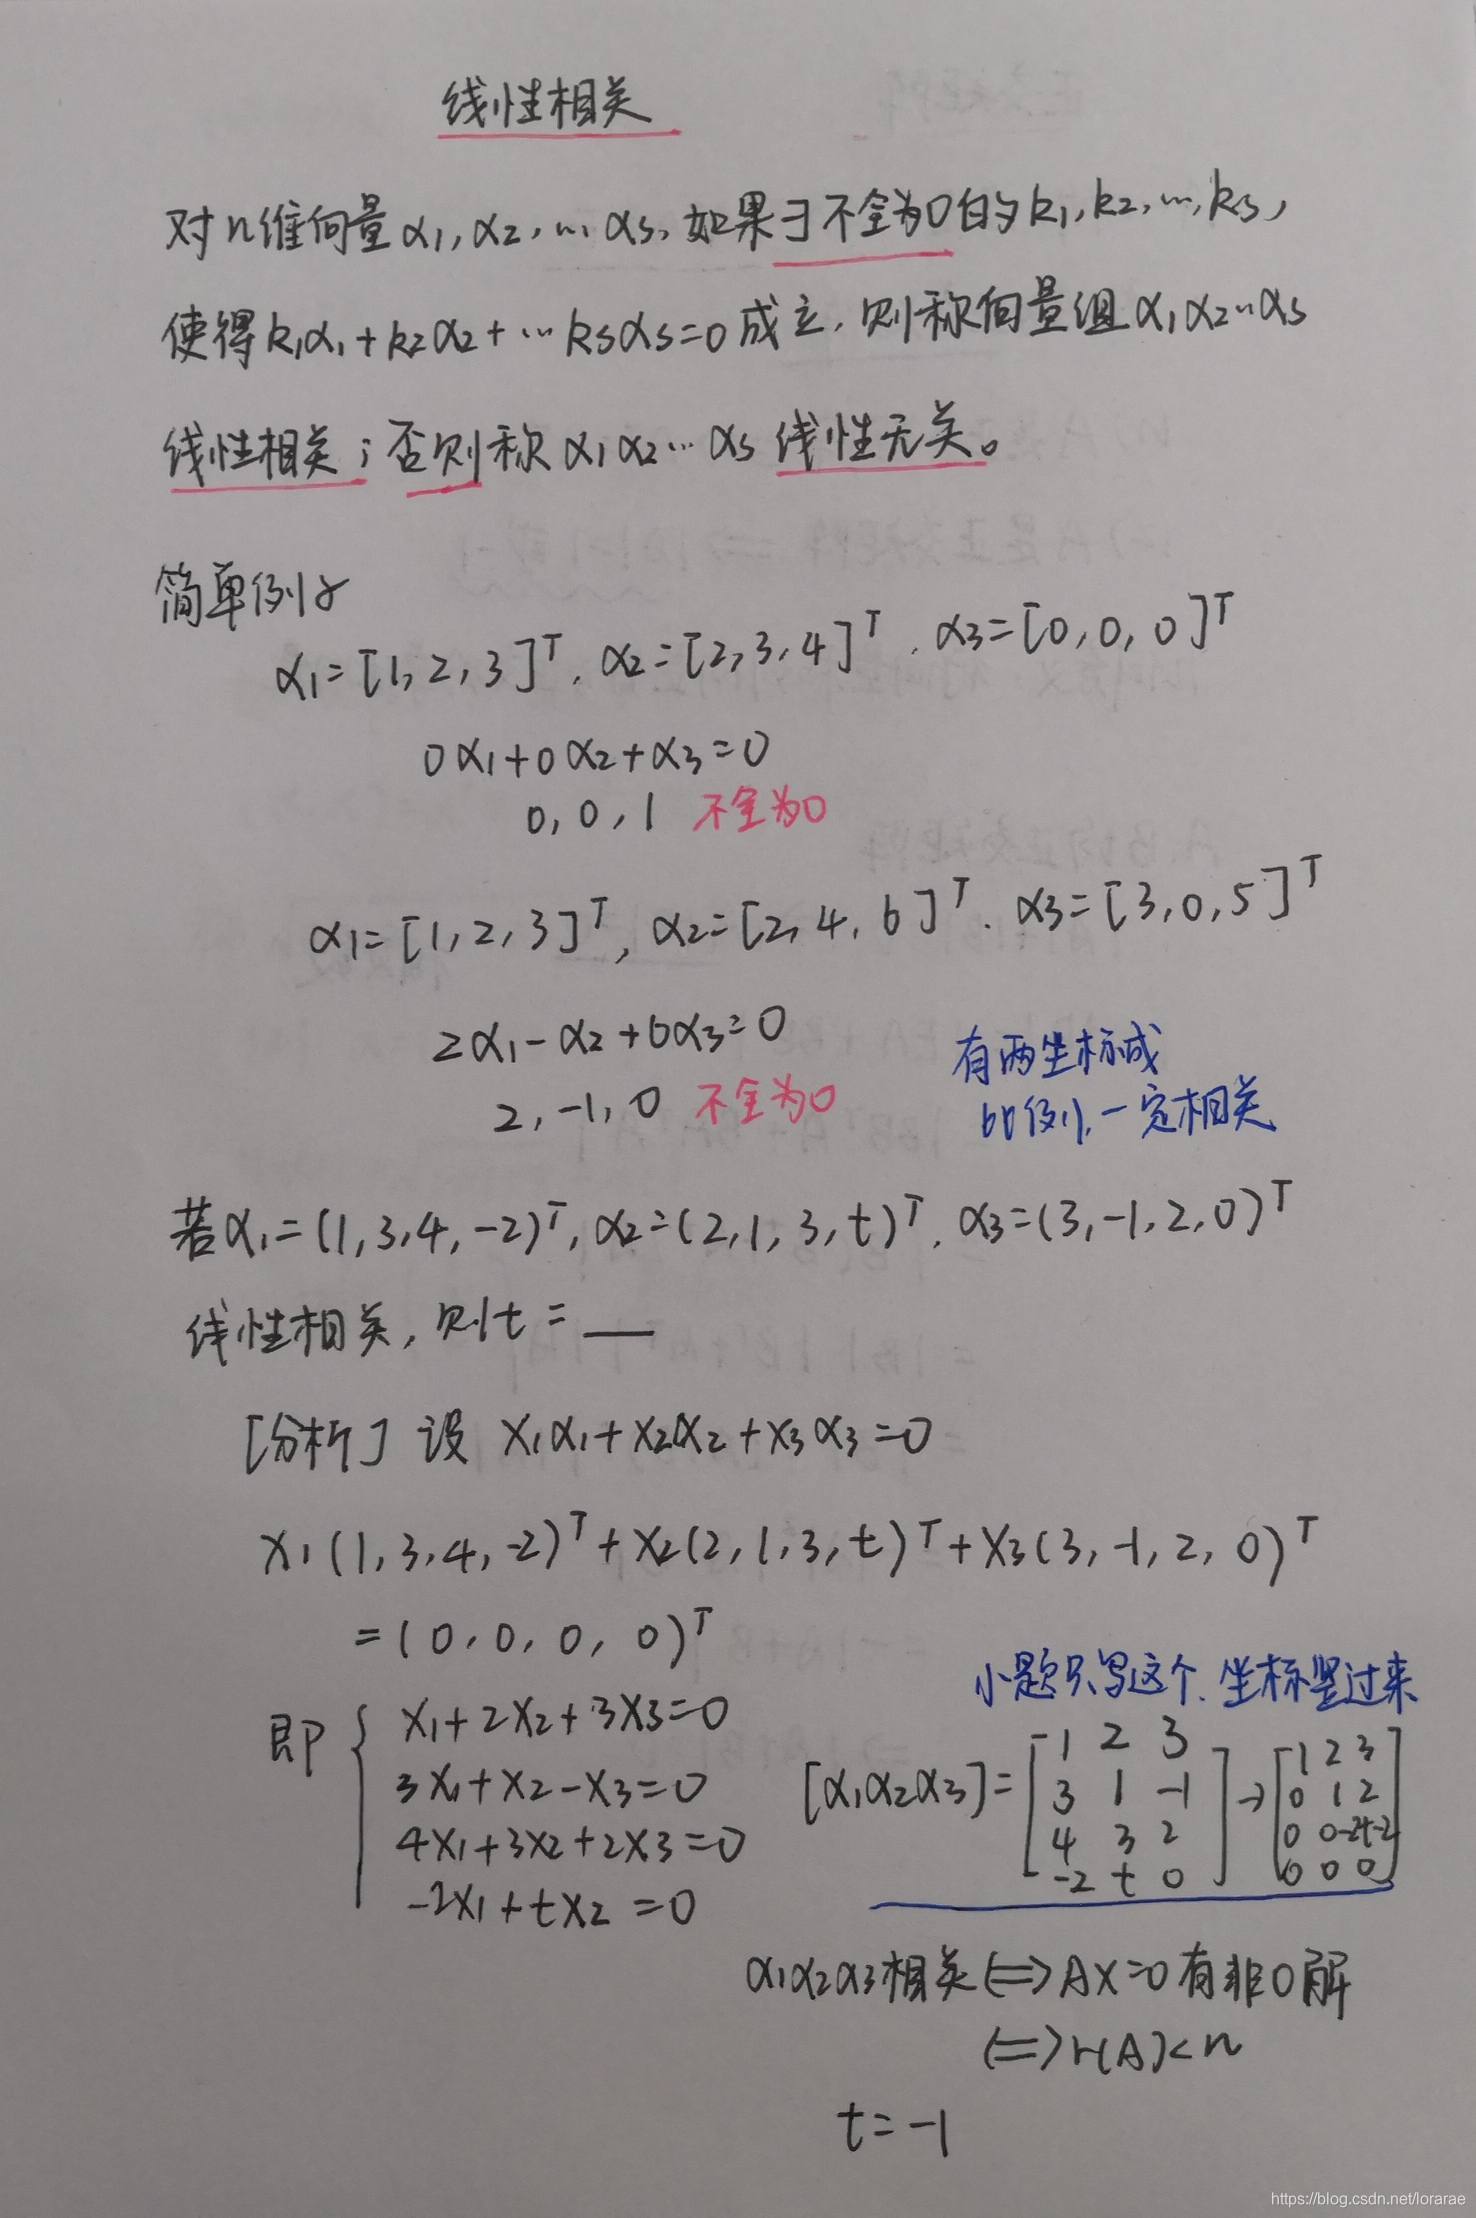 线性相关
对n维向量α1,α2,…,αs,如果∃不全为0的k1,k2,…,ks,
使得k1α1+k2α2+…ksαs=0成立,则称向量组α1α2…αs
线性相关;否则称α1α2…αs线性无关。
简单例子
α1=[1,2,3]^T,α2=[2,3,4]^T,α3=[0,0,0]^T
0α1+0α2+α3=0
0,0,1 不全为0
α1=[1,2,3]^T,α2=[2,4,6]^T,α3=[3,0,5]^T
2α1-α2+0α3=0
2,-1,0 不全为0
有两坐标成
比例,一定相关
若α1=(1,3,4,-2)^T,α2=(2,1,3,t)^T,α3=(3,-1,2,0)^T
线性相关,则t=__
[分析]设 x1α1+x2α2+x3α3=0
x1(1,3,4,-2)^T+x2(2,1,3,t)^T+x3(3,-1,2,0)^T
=(0,0,0,0)^T
小题只写这个,坐标竖过来
即{ x1+2x2+3x3=0
3x1+x2-x3=0
4x1+3x2+2x3=0
-2x1+tx2 =0
[α1α2α3]=[1 2 3
3 1 -1
4 3 2
-2 t 0]
→[1 2 3
0 1 2
0 0 -2t-2
0 0 0]
α1α2α3相关⟺AX=0有非0解
⟺r(A)<n
t=-1
https://blog.csdn.net/lorarae